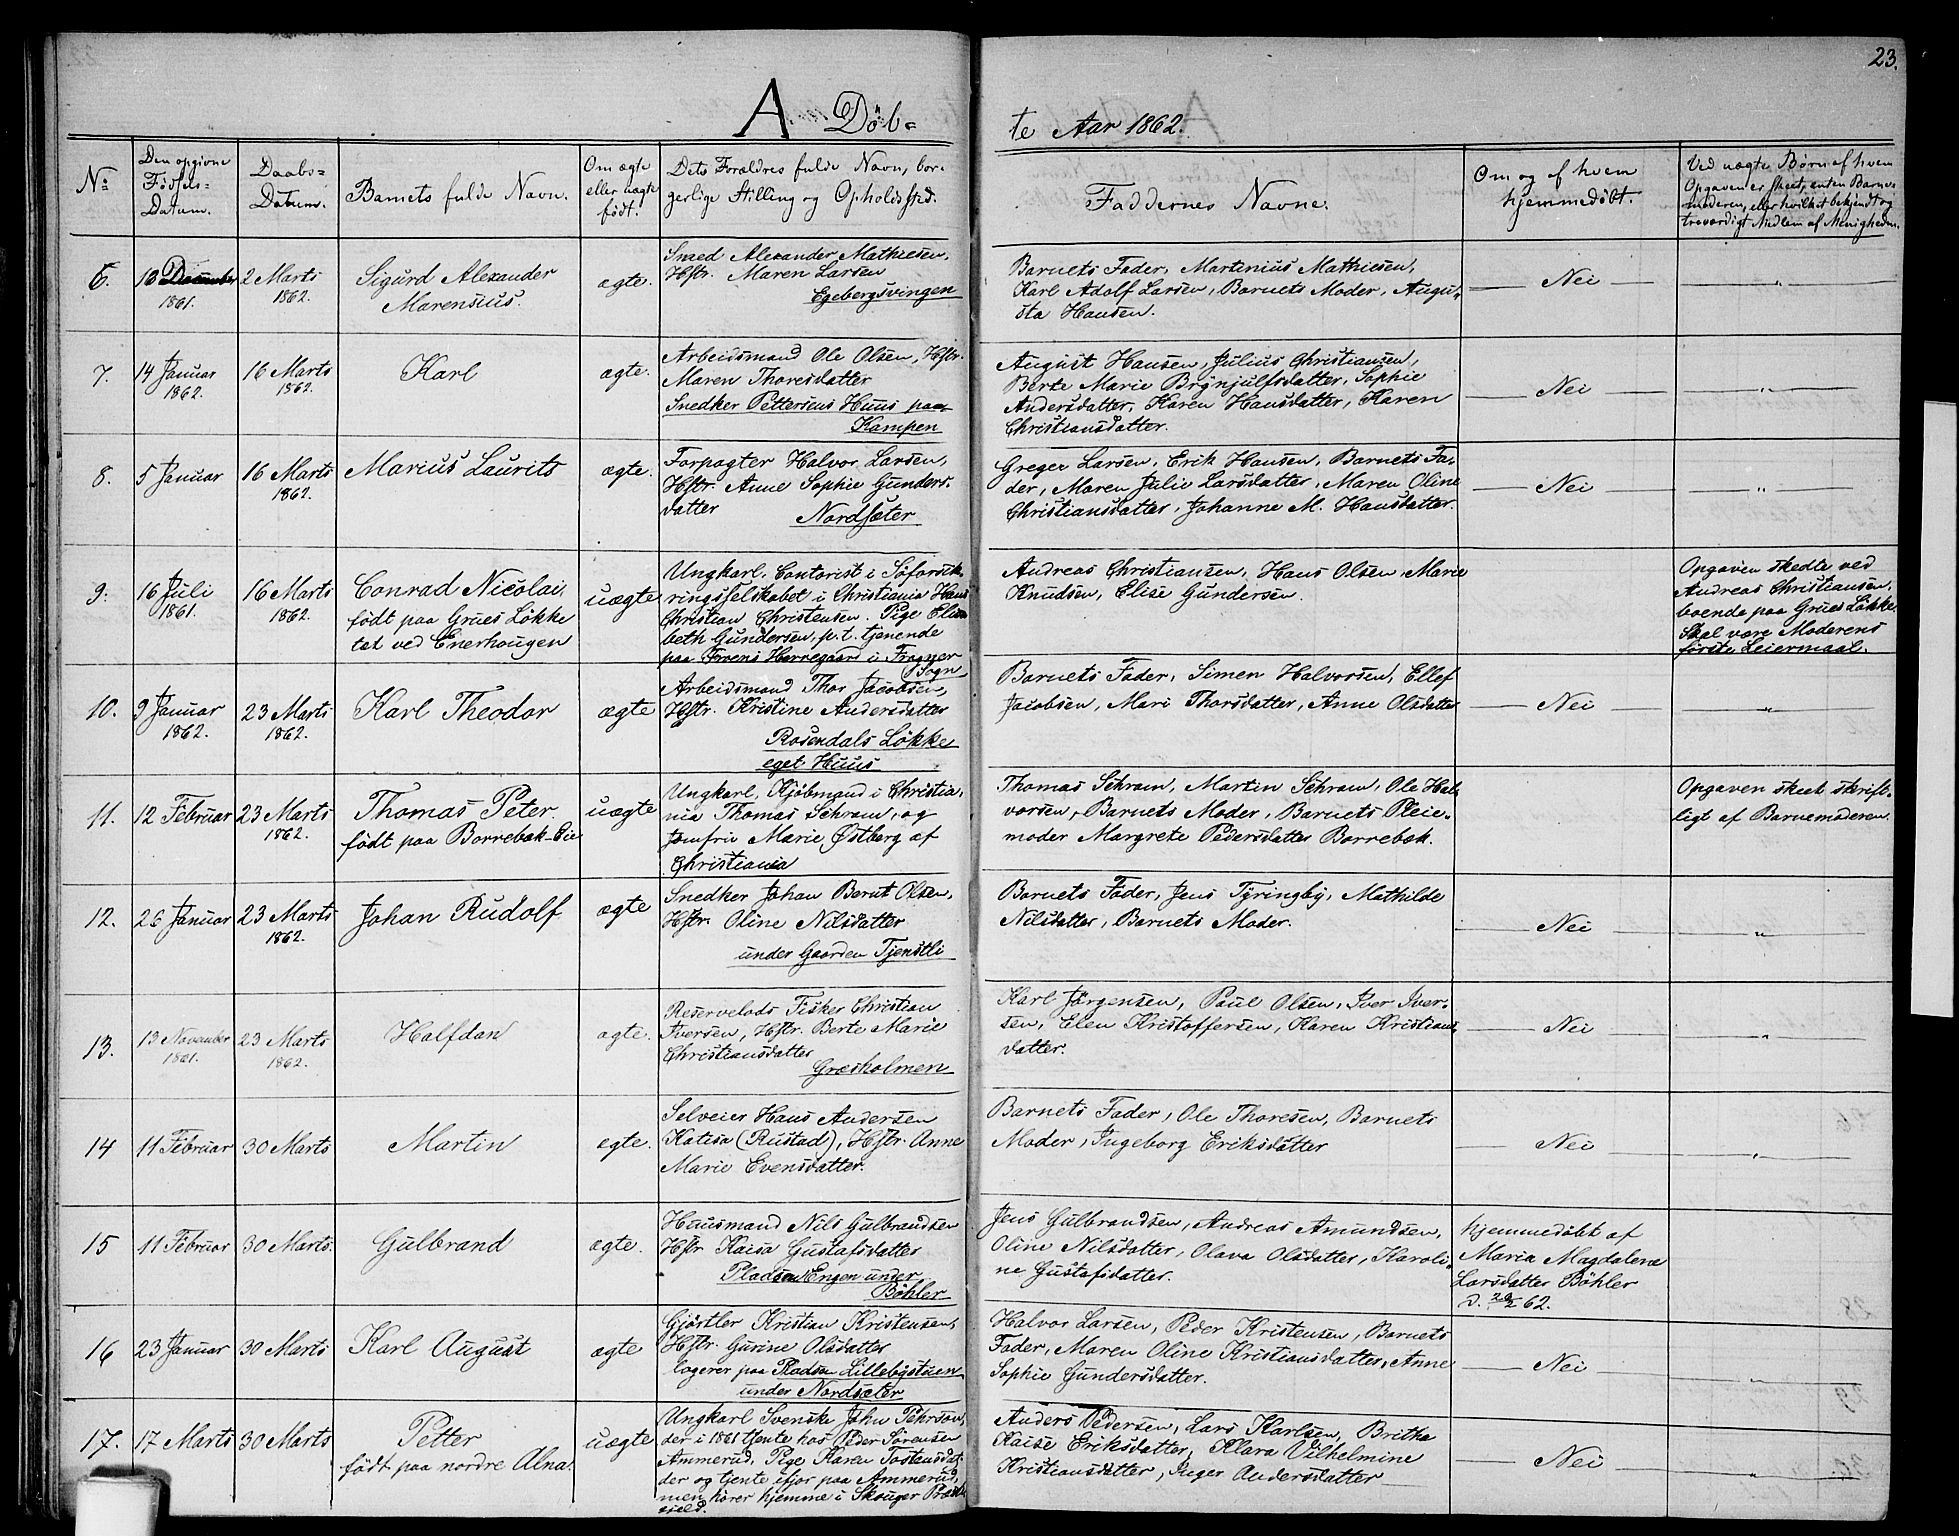 23.
A Döb=
te Aar 1862.
No
Den opgivne
Födsels-
Datum.
Daabs=
Datum.
Barnets fulde Navn.
Om ægte
eller uægte
födt.
Dets Forældres fulde Navn, bor-
gerlige Stilling og Opholdssted.
Faddernes Navne.
Om og af hvem
hjemmedöbt.
Ved uægte Börn af hvem
Opgaven er skeet, enten Barne-
moderen, eller hvilket bekjendt og
troværdigt Medlem af Menigheden.
6.
10 December
1861.
2 Marts
1862.
Sigurd Alexander
Marensius.
ægte.
Smed Alexander Mathiesen,
Hstr. Maren Larsen
Egebergsvingen
Barnets Fader, Martinius Mathiesen,
Karl Adolf Larsen, Barnets Moder, Augu-
sta Hansen.
Nei
"
7.
14 Januar
1862.
16 Marts
1862.
Karl
ægte.
Arbeidsmand Ole Olsen, Hstr.
Maren Thoresdatter
Snedker Pettersens Huus paa
Kampen
August Hansen, Julius Christiansen,
Berte Marie Brynjulfsdatter, Sophie
Andersdatter, Karen Hansdatter, Karen
Christiansdatter.
Nei
"
8.
5 Januar
16 Marts
1862.
Marius Laurits
ægte.
Forpagter Halvor Larsen,
Hstr. Anne Sophie Gunders-
datter
Nordsæter
Greger Larsen, Erik Hansen, Barnets Fa-
der, Maren Julie Larsdatter, Maren Oline
Christiansdatter, Johanne M. Hansdatter.
Nei
"
9.
16 Juli
1861.
16 Marts
1862.
Conrad Nicolai,
födt paa Grües Lökke
tæt ved Enerhougen
uægte
Ungkarl, Contorist i Söforsik-
ringsselskabet i Christiania Hans
Christian Christensen. Pige Elisa-
beth Gundersen, p. t. tjenende
paa Herregaard i Frogner
Sogn
Andreas Christiansen, Hans Olsen, Marie
Knudsen, Elise Gundersen.
Opgaven skedte ved
Andreas Christiansen,
boende paa Grües Lökke.
Skal være Moderens
förste Leiermaal.
10.
9 Januar
1862.
23 Marts
1862.
Karl Theodor
ægte
Arbeidsmand Thor Jacobsen,
Hstr. Kristine Andersdatter
Rosendals Lökke
eget Huus
Barnets Fader, Simen Halvorsen, Ellef
Jacobsen, Mari Thorsdatter, Anne Olsdatter
Nei
"
11.
12 Februar
23 Marts
1862.
Thomas Peter.
födt paa Borrebæk-Eie
uægte
Ungkarl, Kjöbmand i Christia-
nia Thomas Schram, og
Jomfru Marie Østberg af
Christiania
Thomas Schram, Martin Schram, Ole Hal-
vorsen, Barnets Moder, Barnets Pleie-
moder Margrete Pedersdatter Borrebæk.
Opgaven skeet skrift-
ligt af Barnemoderen.
12.
26 Januar
23 Marts
1862.
Johan Rudolf
ægte
Snedker Johan Bernt Olsen,
Hstr. Oline Nilsdatter
under Gaarden Tjenstli
Barnets Fader, Jens Tyringby, Mathilde
Nilsdatter, Barnets Moder.
Nei
"
13.
13 November
1861.
23 Marts
1862.
Halfdan
ægte.
Reservelods Fisker Christian
Iversen, Hstr. Berte Marie
Christiansdatter
Græsholmen
Karl Jörgensen, Paul Olsen, Iver Iver-
sen, Elen Kristoffersen, Karen Kristians-
datter.
Nei
"
14
11 Februar
30 Marts
Martin
ægte.
Selveier Hans Andersen
Katisa (Rustad), Hstr. Anne
Marie Evensdatter.
Barnets Fader, Ole Thoresen, Barnets
Moder, Ingeborg Eriksdatter
Nei
"
15
11 Februar
30 Marts.
Gulbrand
ægte.
Huusmand Nils Gulbrandsen
Hstr Kaisa Gustafsdatter
Pladsen Engen under
Böhler
Jens Gulbrandsen, Andreas Amundsen,
Oline Nilsdatter, Olava Olsdatter, Karoli-
ne Gustafsdatter.
hjemmedöbt af
Maria Magdalene
Larsdatter Böhler
d. 62.
16
23 Januar
30 Marts
Karl August
ægte
Gjörtler Kristian Kristensen,
Hstr. Gurine Olsdatter
logerer paa Pladsen Lillebystuen
under Nordsæter
Halvor Larsen, Peder Kristensen, Barnets
Fader, Maren Oline Kristiansdatter, Anne
Sophie Gundersdatter.
Nei
"
17.
17 Marts
30 Marts
Petter
födt paa nordre Alna.
uægte
Ungkarl Svenske John Pehrson,
der i 1861 tjente hos Peder Sörensen
Ammerud, Pige Karen Tostensdat-
der og tjente ifjor paa Ammerud,
men hörer hjemme i Skouger Præste-
gjeld.
Anders Pedersen, Lars Karlsen, Britha
Kaise Eriksdatter, Klara Vilhelmine
Kristiansdatter, Inger Andersdatter
Nei
"